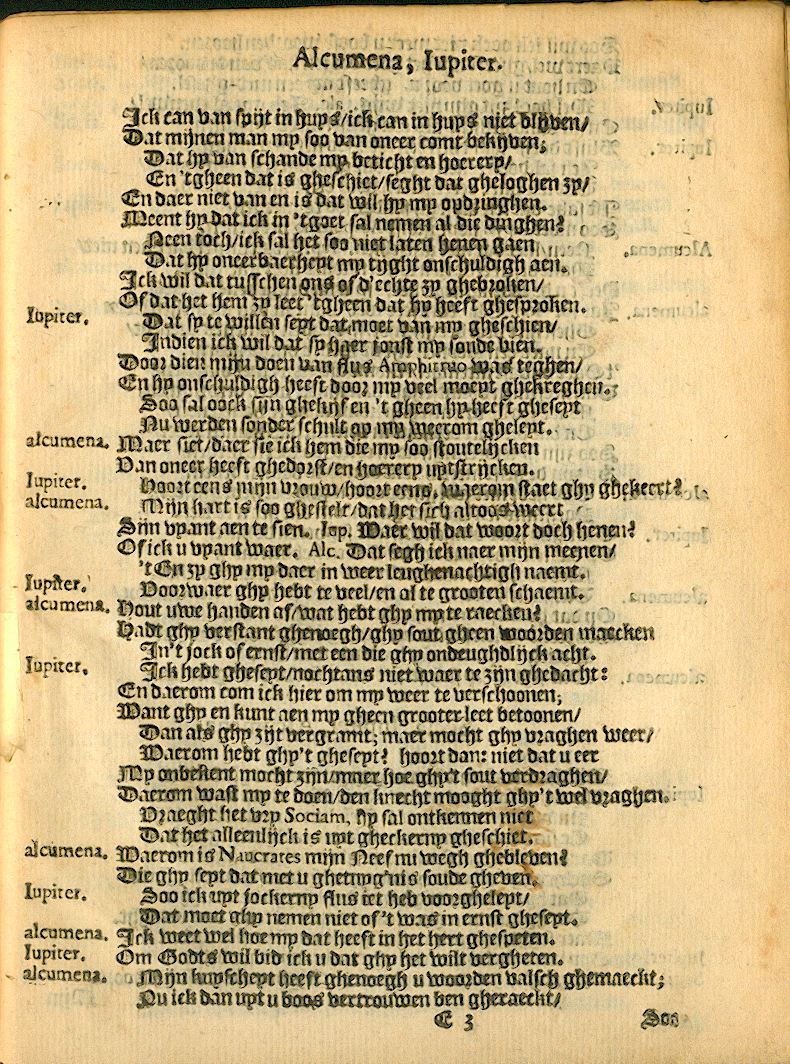 Alcumena, Iupiter.
Ick can van spijt in huys/ick can in huys niet blijven/
Dat mijnen man my soo van oneer comt bekijven;
Dat hy van schande my beticht en hoerery/
En 'tgheen dat is gheschiet/seght dat gheloghen zy/
En daer niet van en is dat wil hy my opdringhen.
Meent hy dat ick in 'tgoet sal nemen al die dinghen?
Neen toch/ick sal het soo niet laten henen gaen
Dat hy oneerbaerheyt my tijght onschuldigh aen.
Ick wil dat tusschen ons of d'echte zy ghebroken/
Of dat het hem zy leet 'tgheen dat hy heeft ghesproken.
Iupiter. Dat sy te willen seyt dat moet van my gheschien/
Indien ick wil dat sy haer jonst my soude bien.
Door dien mijn doen van flus Amphitruo was teghen/
En hy onschuldigh heeft door my veel moeyt ghekreghen.
Soo sal oock sijn ghekijf en 't gheen hy heeft gheseyt
Nu werden sonder schult op my weerom gheleyt.
alcumena. Maer siet/daer sie ick hem die my soo stoutelijcken
Van oneer heeft ghedorst/en hoerery uytstrijcken.
Iupiter. Hoort eens mijn vrouw/hoort eens, waerom staet ghy ghekeert?
alcumena. Mijn hart is soo ghestelt/dat het sich altoos weert
Sijn vyant aen te sien. Iup. Waer wil dat woort doch henen?
Of ick u vyant waer. Alc. Dat segh ick naer mijn meenen/
't En zy ghy my daer in weer leughenachtigh naemt.
Iupiter. Voorwaer ghy hebt te veel/en al te grooten schaemt.
alcumena. Hout uwe handen af/wat hebt ghy my te raecken?
Hadt ghy verstant ghenoegh/ghy sout gheen woorden maecken
In't jock of ernst/met een die ghy ondeughdlijck acht.
Iupiter. Ick hebt gheseyt/nochtans niet waer te zijn ghedacht:
En daerom com ick hier om my weer te verschoonen;
Want ghy en kunt aen my gheen grooter leet betoonen/
Dan als ghy zijt vergramt; maer mocht ghy vraghen weer/
Waerom hebt ghy't gheseyt? hoort dan: niet dat u eer
My onbekent mocht zijn/maer hoe ghy't sout verdraghen/
Daerom wast my te doen/den knecht mooght ghy't wel vraghen.
Vraeght het vry Sociam, hy sal ontkennen niet
Dat het alleenlijck is uyt gheckerny gheschiet.
alcumena. Waerom is Naucrates mijn Neef nu wegh ghebleven?
Die ghy seyt dat met u ghetuyg'nis soude gheven.
Iupiter. Soo ick uyt jockerny flus iet heb voorgheleyt/
Dat moet ghy nemen niet of 't was in ernst gheseyt.
alcumena. Ick weet wel hoe my dat heeft in het hert ghespeten.
Iupiter. Om Godts wil bid ick u dat ghy het wilt vergheten.
alcumena. Mijn kuyscheyt heeft ghenoegh u woorden valsch ghemaeckt;
Nu ick dan uyt u boos vertrouwen ben gheraeckt/
E 3 Soo